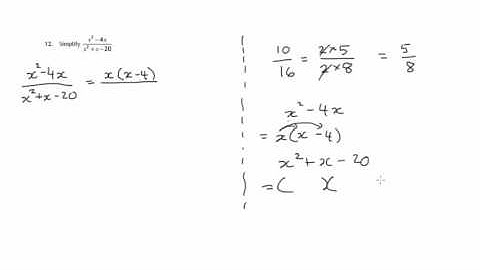 12. Simplify (x² − 4x)/(x² + x − 20)
(x² − 4x)/(x² + x − 20) = x(x−4)
10/16 = (2×5)/(2×8) = 5/8
x² − 4x
= x(x − 4)
x² + x − 20
= (   )(